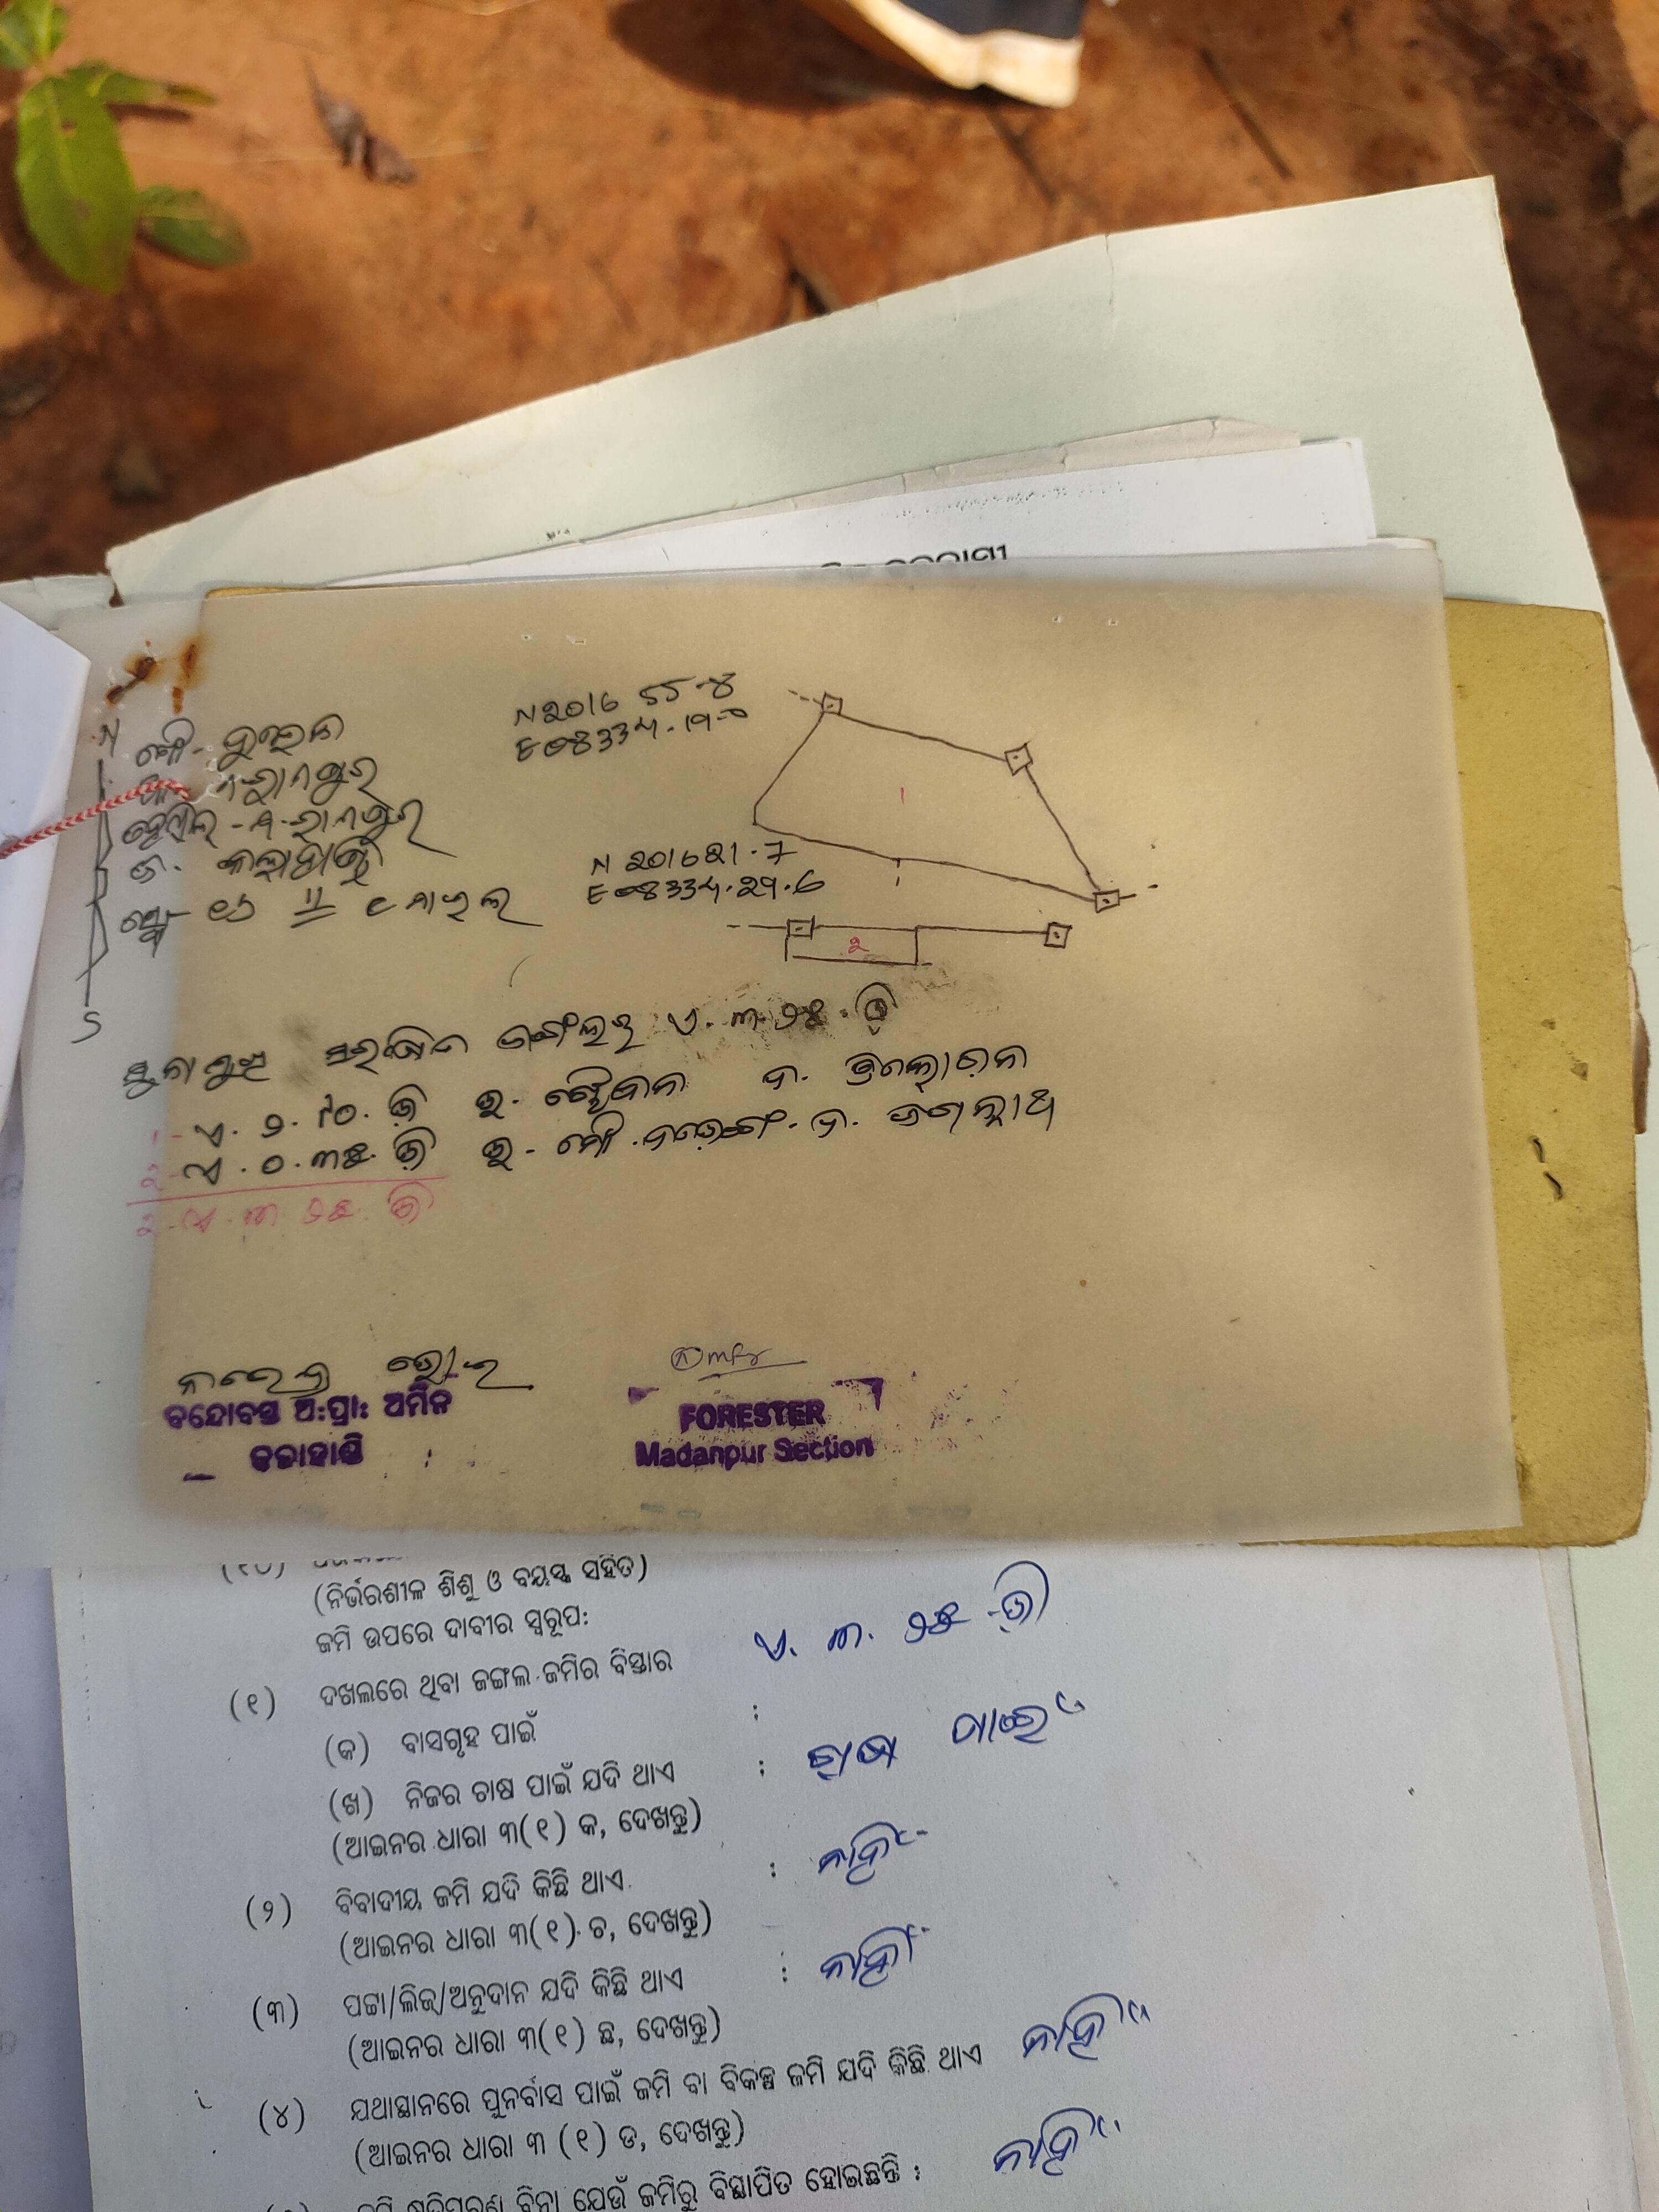 N
ମୌ-
ମ.ରାମପୁର
ତହସିଲ୍ - ମ.ରାମପୁର
ଜି. କଳାହାଣ୍ଡି
ସ୍କେ- ୧୬ ୲୲ ୧ ମାଇଲ
S
N 2016 55.४
E 08334.19.0
1
N 201621.7
E 08334.29.6
୨
ସଂରକ୍ଷିତ ଜଙ୍ଗଲରୁ ଏ. ୩.୨୫.ଡି
୧- ଏ. ୨.୯୦.ଡି ଉ. ଦ. ତ୍ରିଲୋଚନ
୨- ଏ. ୦.୩୫.ଡି ଉ- ଦ. ଜଗନ୍ନାଥ
୨- ଏ. ୩ ୨୫.ଡି
ନରେନ୍ଦ୍ର ଭୋଇ
ବନ୍ଦୋବସ୍ତ ଅ:ପ୍ରା: ଅମିନ
କଳାହାଣ୍ଡି
FORESTER
Madanpur Section
(ନିର୍ଭରଶୀଳ ଶିଶୁ ଓ ବୟସ୍କ ସହିତ)
ଜମି ଉପରେ ଦାବୀର ସ୍ୱରୂପ:
(୧) ଦଖଲରେ ଥିବା ଜଙ୍ଗଲ ଜମିର ବିସ୍ତାର ଏ. ୩. ୨୫ ଡି
(କ) ବାସଗୃହ ପାଇଁ :
(ଖ) ନିଜର ଚାଷ ପାଇଁ ଯଦି ଥାଏ : ଚାଷ ପାଇଁ
(ଆଇନର ଧାରା ୩(୧) କ, ଦେଖନ୍ତୁ)
(୨) ବିବାଦୀୟ ଜମି ଯଦି କିଛି ଥାଏ : ନାହିଁ
(ଆଇନର ଧାରା ୩(୧) ଚ, ଦେଖନ୍ତୁ)
(୩) ପଟ୍ଟା/ଲିଜ୍/ଅନୁଦାନ ଯଦି କିଛି ଥାଏ : ନାହିଁ
(ଆଇନର ଧାରା ୩(୧) ଛ, ଦେଖନ୍ତୁ)
(୪) ଯଥାସ୍ଥାନରେ ପୁନର୍ବାସ ପାଇଁ ଜମି ବା ବିକଳ୍ପ ଜମି ଯଦି କିଛି ଥାଏ ନାହିଁ
(ଆଇନର ଧାରା ୩ (୧) ଡ, ଦେଖନ୍ତୁ)
ବିନା ଯେଉଁ ଜମିରୁ ବିସ୍ଥାପିତ ହୋଇଛନ୍ତି : ନାହିଁ